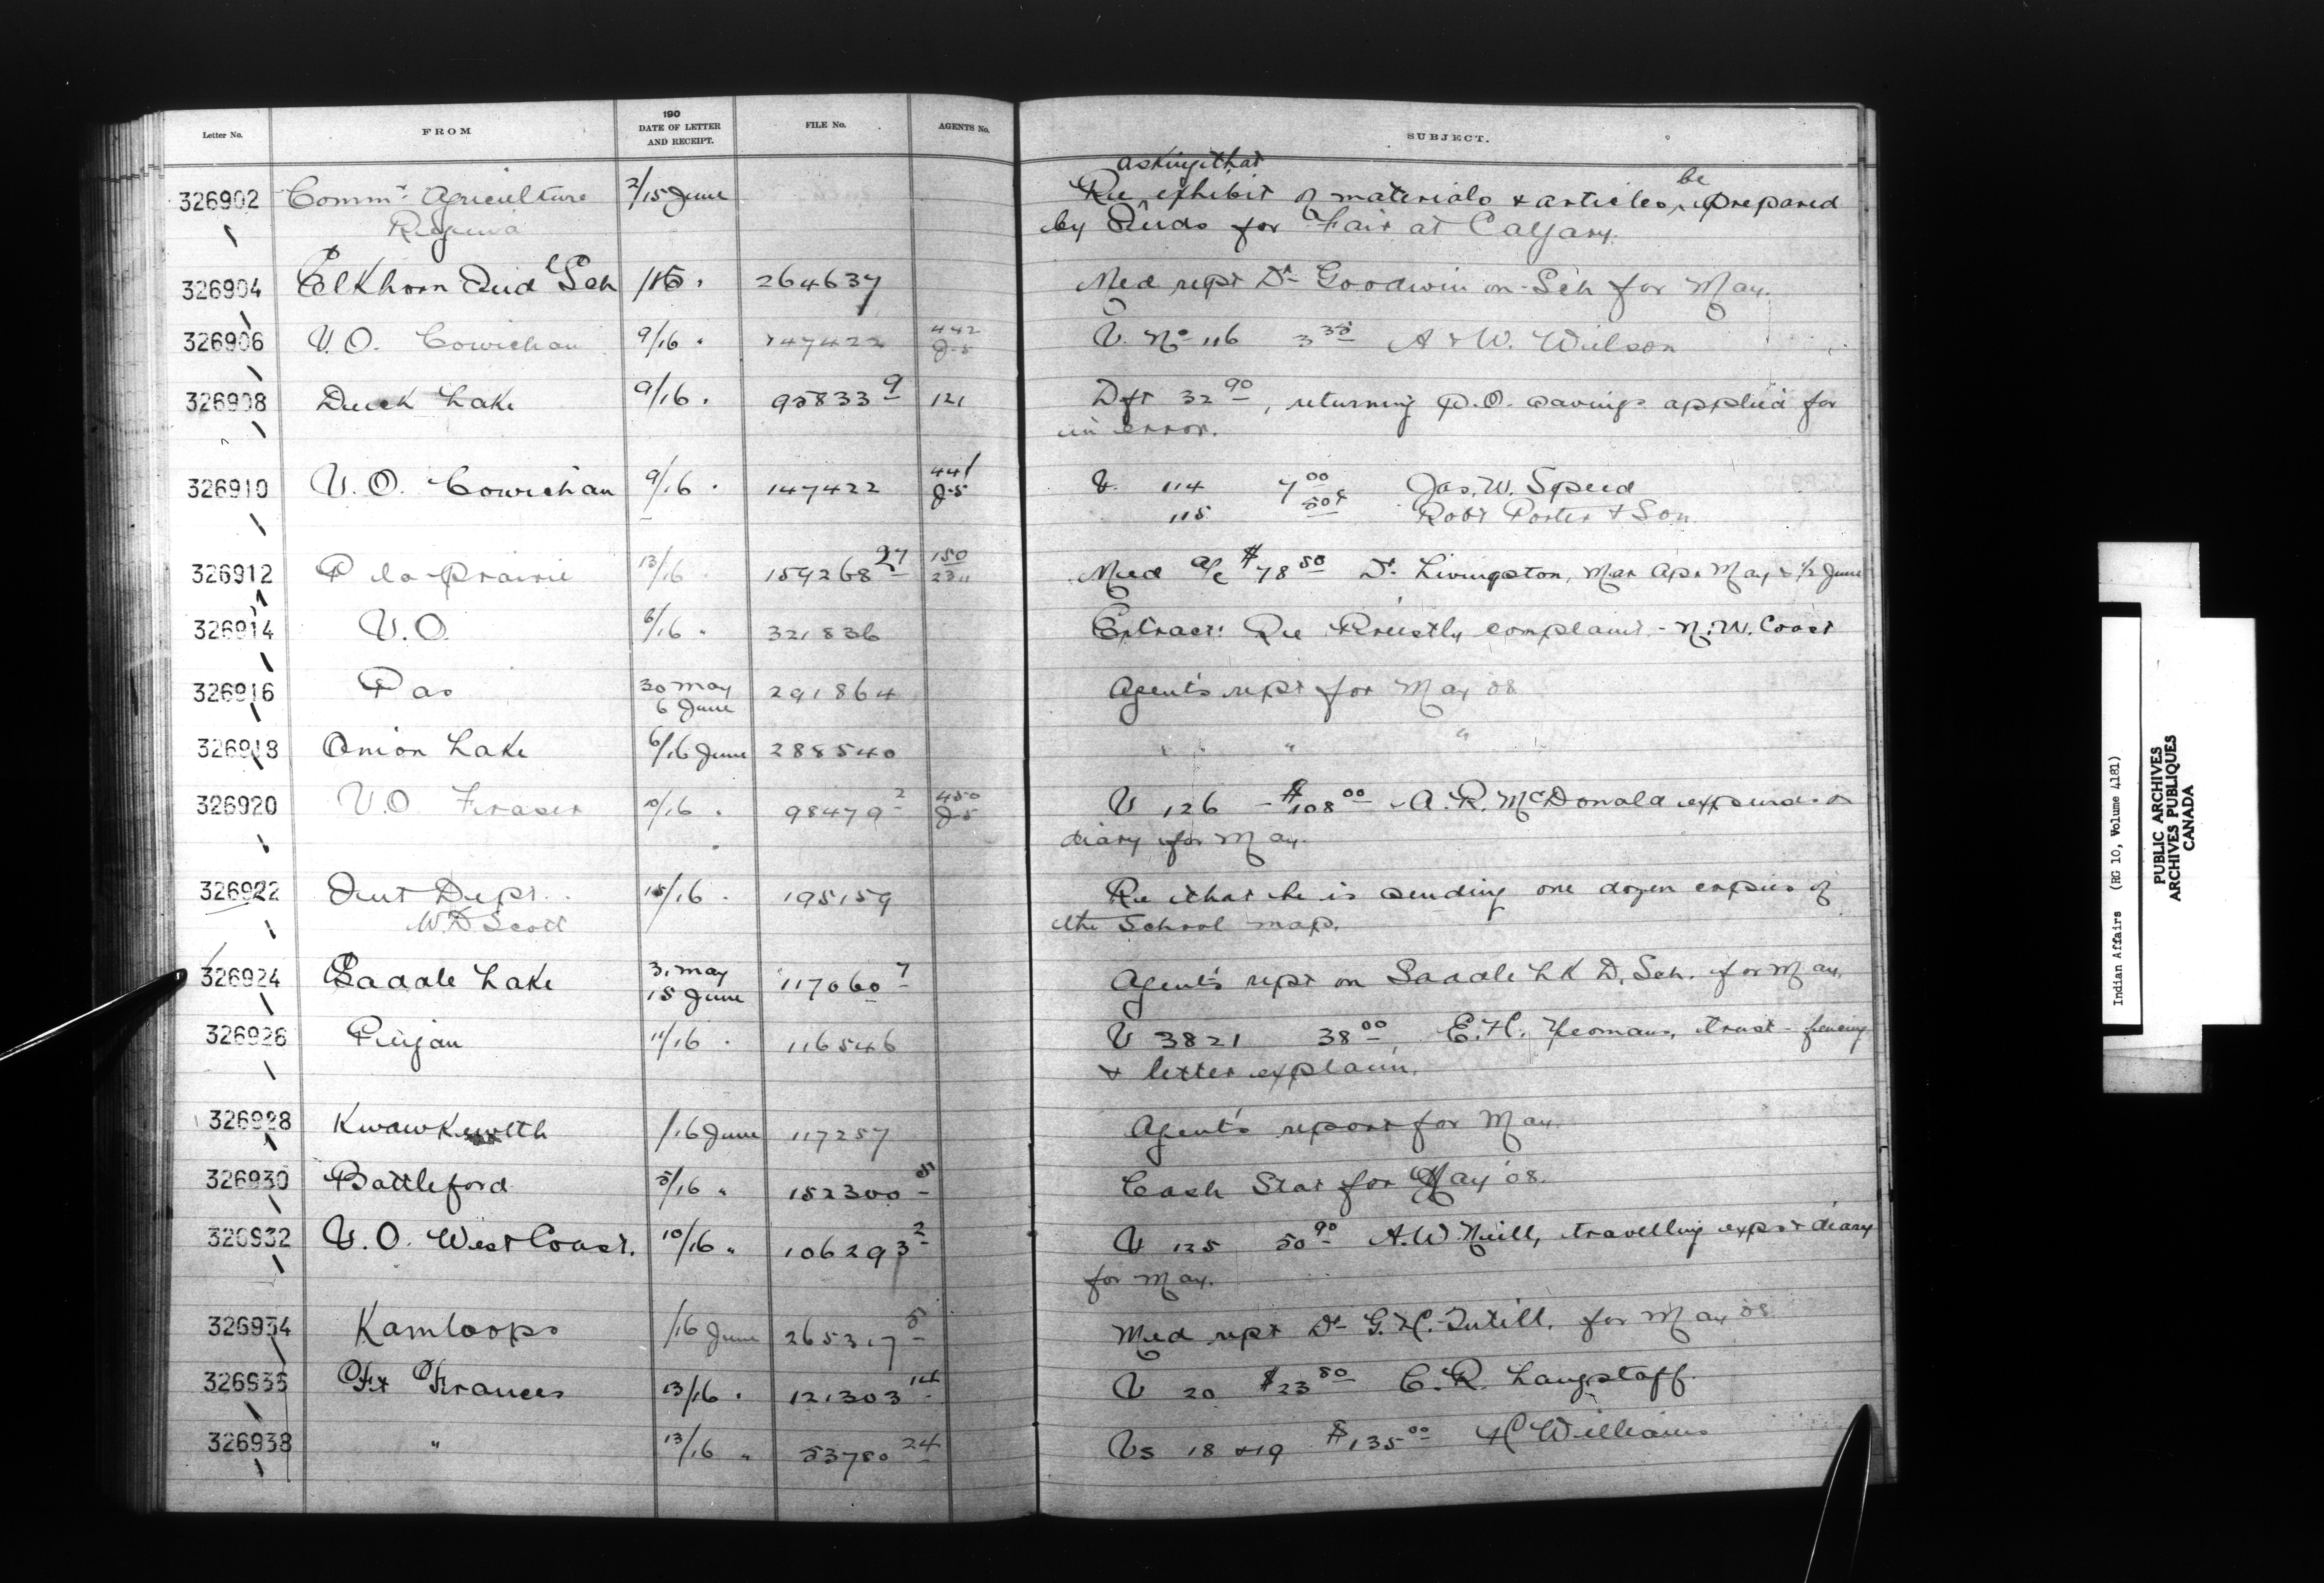 Letter No. FROM 190 DATE OF LETTER AND RECEIPT. FILE No. AGENTS No. SUBJECT.
asking that
326902 Commr Agriculture 2/15 June Re exhibit of materials & articles, be prepared
Regina by Inds for Fair at Calgary.
326904 Elkhorn Ind l Sch /15 " 264637 Med rept Dr Goodwin on Sch for May.
326906 V.O. Cowichan 9/16 " 147422 442 J-5 V. No 116 3 35 A & W. Wilson
326908 Duck Lake 9/16 " 95833 9 121 Dft 32 90, returning P.O. savings applied for
in error.
326910 V.O. Cowichan 9/16 " 147422 441 J-5 V. 114 7 00 Jas. W. Speed
115 50¢ Robt Porter & Son
326912 P la Prairie 13/16 " 159268 27 150 23 Med a/c $78 50 Dr. Livingston, Mar Apr May & 1/2 June
326914 V.O. 6/16 " 321836 Extract: Re Priestly complaint - N.W. Coast
326916 Pas 30 May 6 June 291864 Agent's rept for May '08
326918 Onion Lake 6/16 June 288540 " " " "
326920 V.O. Fraser 10/16 " 98479 2 450 J-5 V 126 - $108 00 - A. R. McDonald expends &
diary for May.
326922 Int Dept. 15/16 " 195159 Re that he is sending one dozen copies of
W.D Scott the School map.
326924 Saddle Lake 31 May 15 June 117060 7 Agent's rept on Saddle Lk D. Sch. for May
326926 Peigan 11/16 " 116546 V 3821 38 00, E.H. Yeomans, trust - fencing
& letter explain.
326928 Kwawkewlth /16 June 117257 Agent's report for May.
326930 Battleford 5/16 " 152300 5 Cash Stat for May '08.
326932 V.O. West Coast. 10/16 " 106293 2 V 125 50 90 A.W. Neill, travelling exps & diary
for May.
326934 Kamloops /16 June 265317 5 Med rept Dr G.H. Tutill, for May 08
326936 Ft Frances 13/16 " 121303 14 V 20 $23 80 C. R. Langstaff.
326938 " 13/16 " 53780 24 Vs 18 & 19 $135 00 H Williams
Indian Affairs (RG 10, Volume 4181)
PUBLIC ARCHIVES
ARCHIVES PUBLIQUES
CANADA